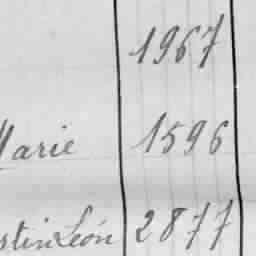 1967
Marie 1596
stin León 2877